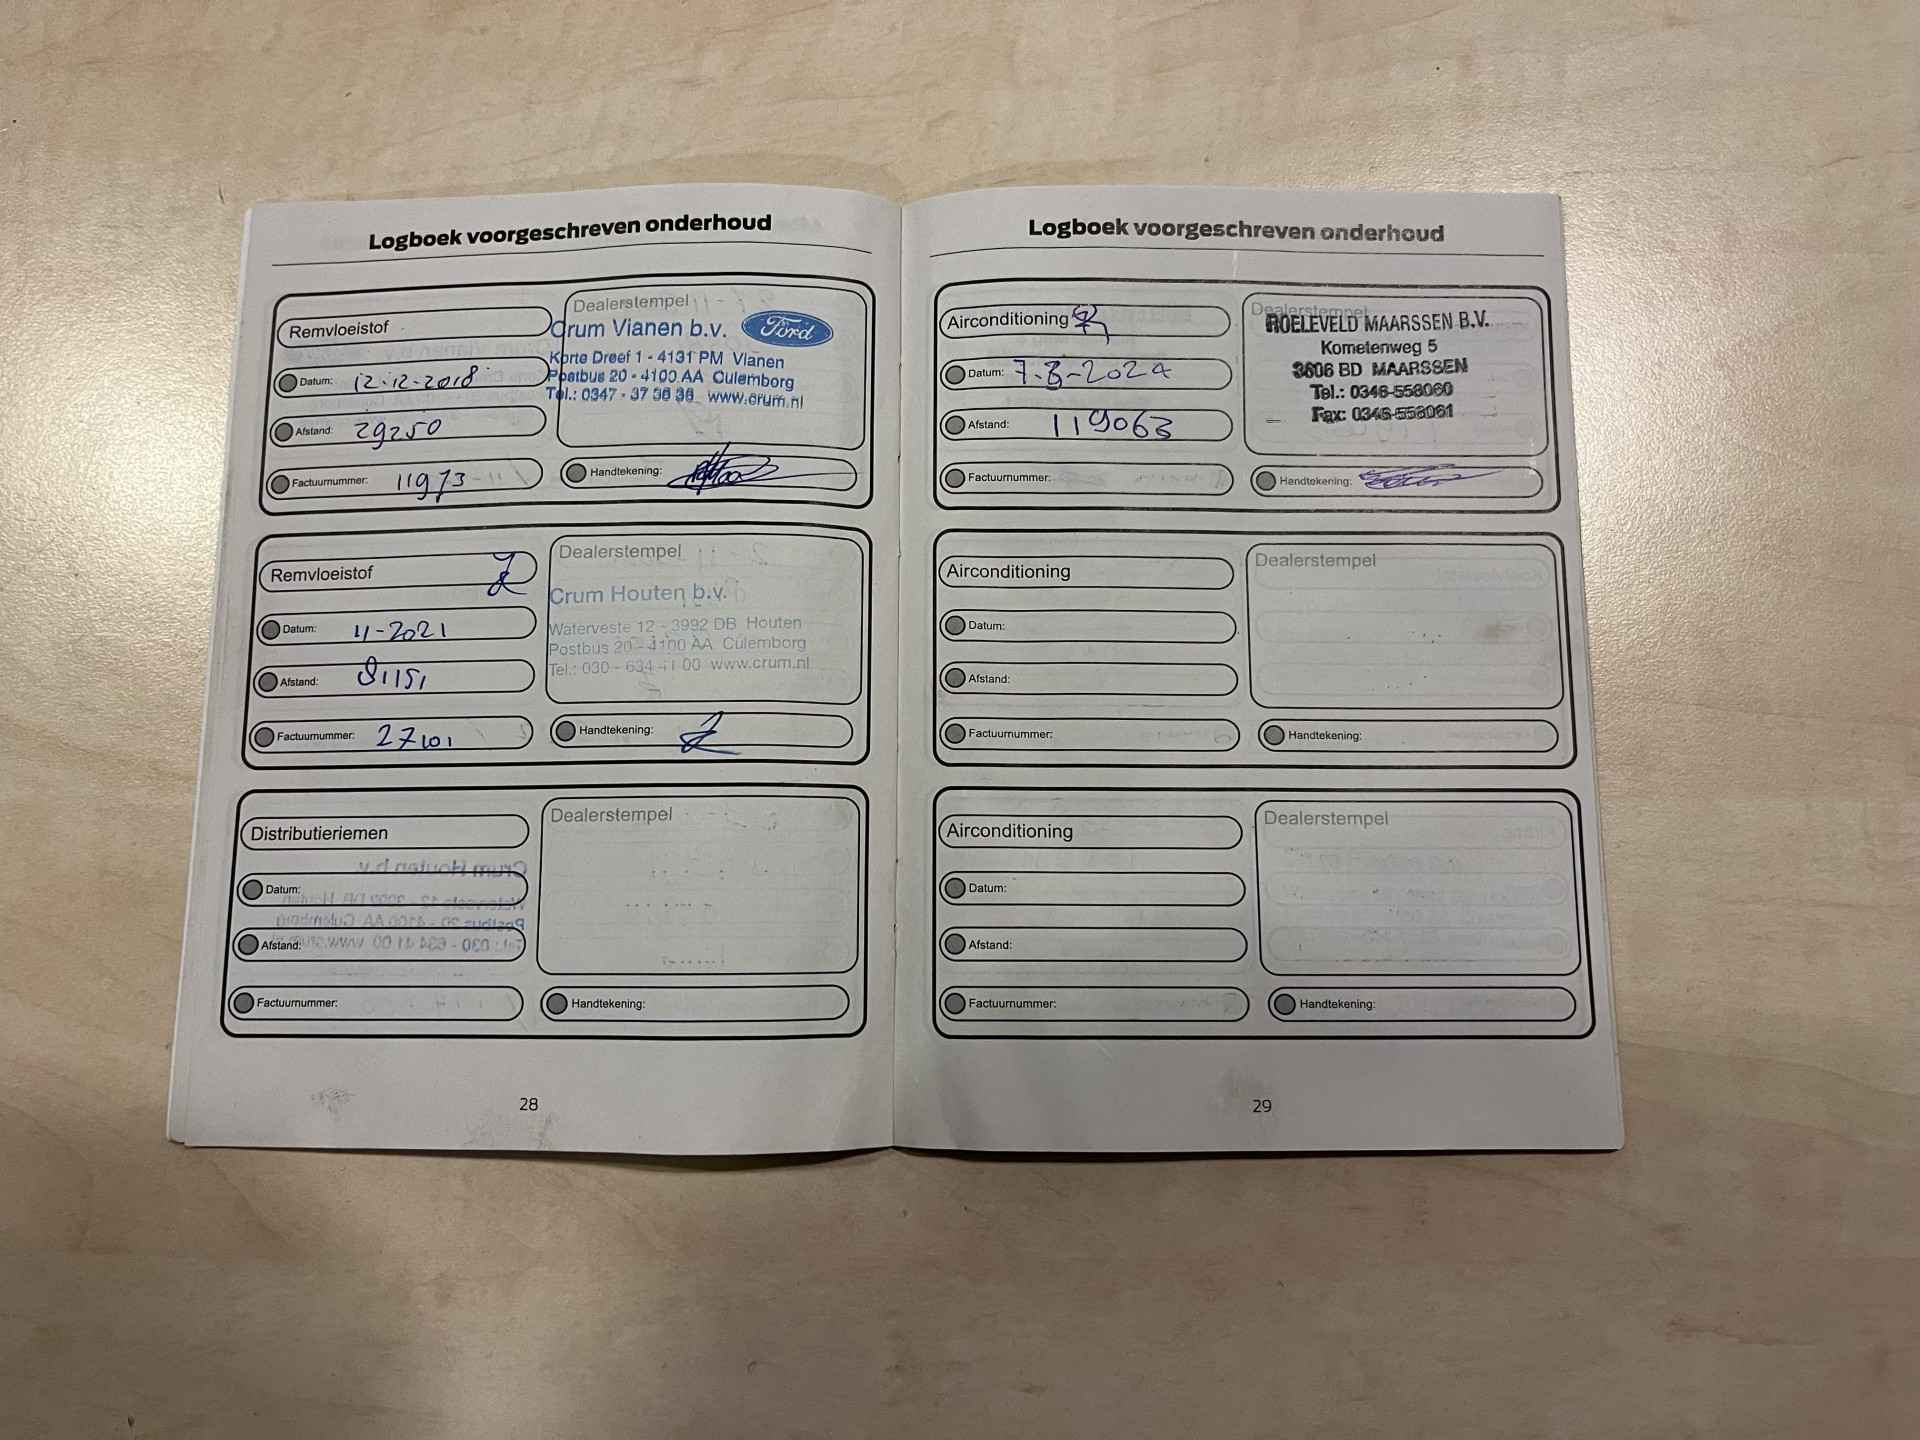 Logboek voorgeschreven onderhoud
Remvloeistof
Datum: 12-12-2018
Afstand: 29250
Factuurnummer: 11973
Dealerstempel
Crum Vianen b.v. Ford
Korte Dreef 1 - 4131 PM Vianen
Postbus 20 - 4100 AA Culemborg
Tel.: 0347 - 37 36 36 www.crum.nl
Handtekening:
Remvloeistof
Datum: 11-2021
Afstand: 81151
Factuurnummer: 27101
Dealerstempel
Crum Houten b.v.
Waterveste 12 - 3992 DB Houten
Postbus 20 - 4100 AA Culemborg
Tel.: 030 - 634 41 00 www.crum.nl
Handtekening:
Distributieriemen
Datum:
Afstand:
Factuurnummer:
Dealerstempel
Handtekening:
28
Logboek voorgeschreven onderhoud
Airconditioning
Datum: 7-3-2024
Afstand: 119063
Factuurnummer:
Dealerstempel
ROELEVELD MAARSSEN B.V.
Kometenweg 5
3606 BD MAARSSEN
Tel.: 0346-558060
Fax: 0346-558061
Handtekening:
Airconditioning
Datum:
Afstand:
Factuurnummer:
Dealerstempel
Handtekening:
Airconditioning
Datum:
Afstand:
Factuurnummer:
Dealerstempel
Handtekening:
29